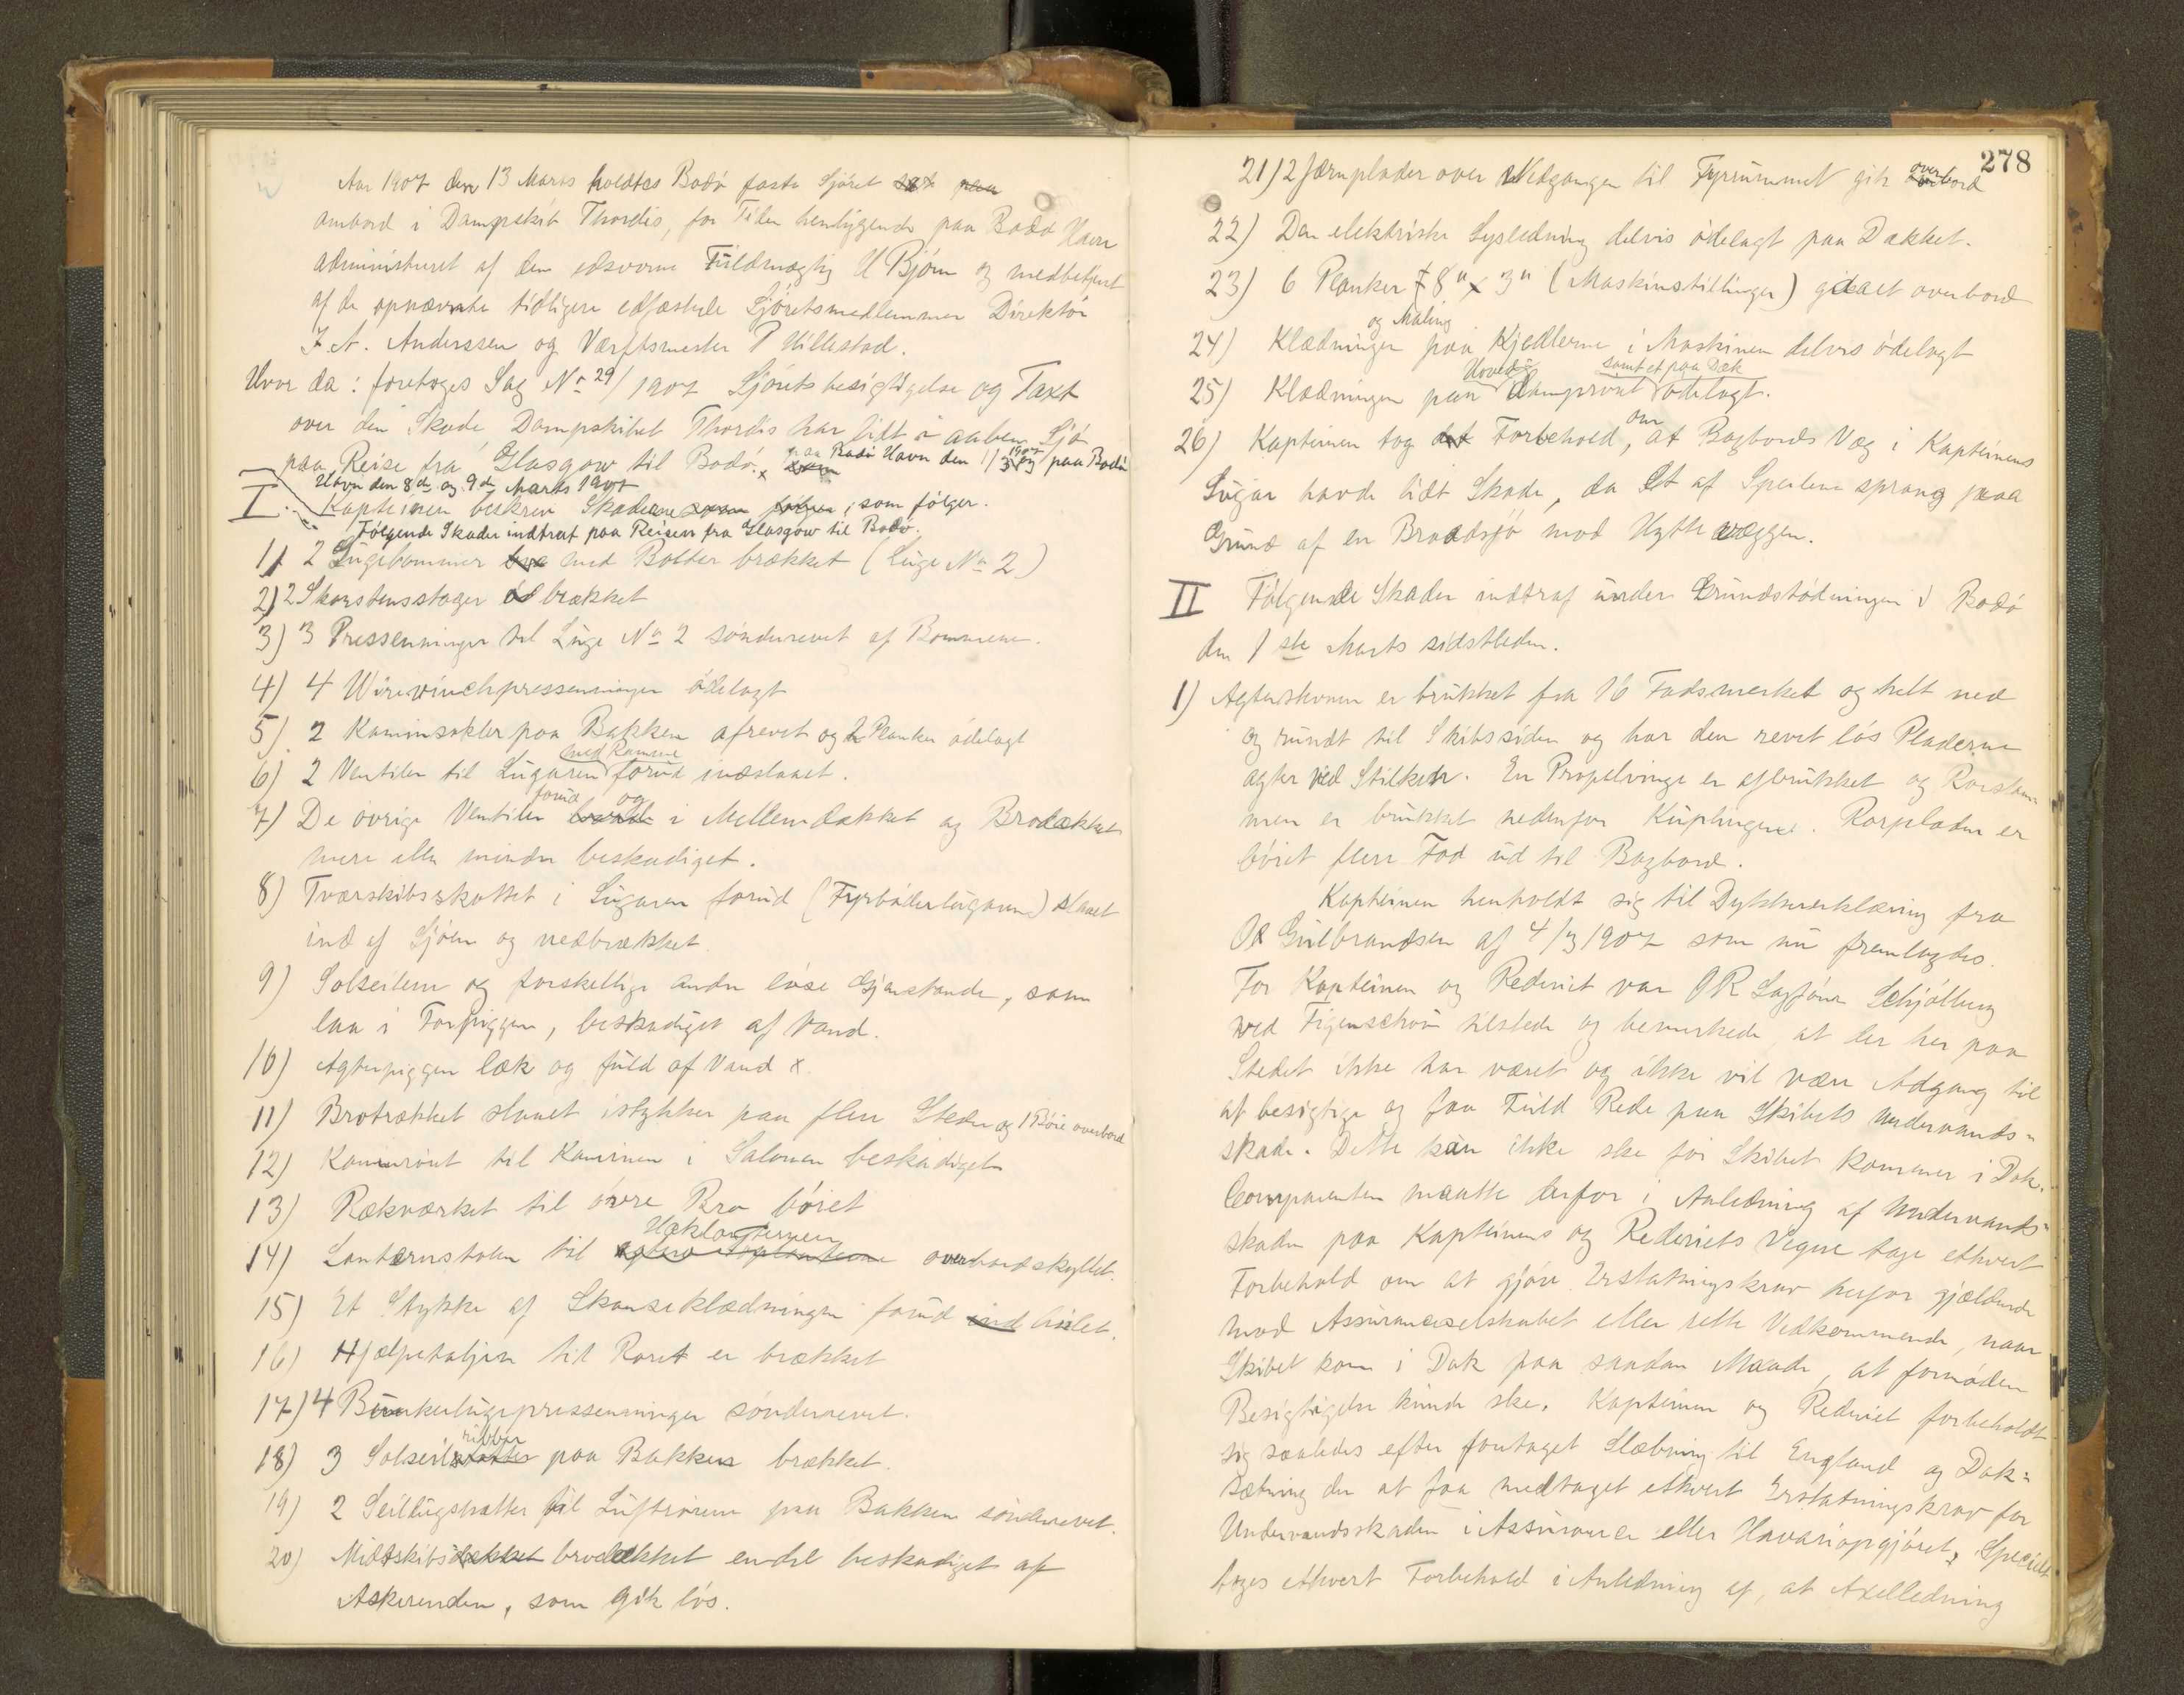 Aar 1907 den 13 Marts holdtes Bodø faste Sjøret
ombord i Dampskib Thordis, for Tiden henliggende paa Bodø Havn
administreret af den edsvorne Fuldmægtig H Bjørn og medbetjent
af de opnævnte tidligere edfæstede Sjøretsmedlemmer Direktør
J. A. Anderssen og Værftsmester P Hillestad.
Hvor da: foretoges Sag No 29/1907 Sjøretsbesigtigelse og Taxt
over den Skade Dampskibet Thordis har lidt i aaben Sjø
paa Reise fra Glasgow til Bodø x paa Bodø Havn den 1/3 1907 paa Bodø
Havn den 8de og 9de Marts 1907
I. Kapteinen beskrev Skaderne som følger.
Følgende Skader indtraf paa Reisen fra Glasgow til Bodø.
1) 2 Lugebommer med Bolter brækket (Luge No 2)
2) 2 Skorstensstager brækket
3) 3 Pressenninger til Luge No 2 sønderrevet af Bommene.
4) 4 Wirewinchpressenninger ødelagt
5) 2 Kaminsokler paa Bakken afrevet og 2 Planker ødelagt
6) 2 Ventiler til Lugaren med Ramme forud indslaaet.
7) De øvrige Ventiler forud og i Mellemdækket og Brodækket
mere eller mindre beskadiget.
8) Tværskibsskottet i Lugaren forud (Fyrbøderlugaren) slaaet
ind af Sjøen og nedbrækket
9) Solseilene og forskellige andre løse Gjenstande, som
laa i Forpiggen, beskadiget af Vand.
10) Agterpiggen læk og fuld af Vand x
11) Brotrækket slaaet istykker paa flere Steder og 1 Bøie overbord
12) Kaminrøret til Kaminen i Salonen beskadiget
13) Rækværket til øvre Bro bøiet
14) Lanternstolen til Hæklanternen overbordskyllet.
15) Et Stykke af Skanseklædningen forud bulet.
16) Hjælpetaljen til Roret er brækket
17) 4 Bunkerlugepressenninger sønderrevet.
18) 3 Solseilribber paa Bakken brækket.
19) 2 Seildugshatter til Luftrørene paa Bakken sønderrevet.
20) Midtskibs brodækket endel beskadiget af
Askerenden, som gik løs.
278
21) 2 Jærnplader over Nedgangen til Fyrrummet gik overbord
22) Den elektriske Lysledning delvis ødelagt paa Dækket.
23) 6 Planker 8" x 3" (Maskinstillinger) gaaet overbord
24) Klædningen og Maling paa Kjedlerne i Maskinen delvis ødelagt
25) Klædningen paa Hoved Damprøret samt et paa Dæk ødelagt.
26) Kapteinen tog Forbehold, om at Bagbords Væg i Kapteinens
Lugar havde lidt Skade, da Et af Speilene sprang paa
Grund af en Braadsjø mod Hyttevæggen.
II Følgende Skader indtraf under Grundstødningen i Bodø
den 1ste Marts sidstleden.
1) Agterstevnen er brukket fra 16 Fodsmerket og helt ned
og rundt til Skibssiden og har den revet løs Pladerne
agter ved Stilken. En Propelvinge er afbrukket og Rorstam-
men er brukket nedenfor Kuplingene. Rorpladen er
bøiet flere Fod ud til Bagbord.
Kapteinen henholdt sig til Dykkererklæring fra
Ol Gulbrandsen af 4/3 1907 som nu fremlagdes.
For Kapteinen og Rederiet var OR Sagfører Schjølberg
ved Figenschou tilstede og bemerkede, at der her paa
Stedet ikke har været og ikke vil være Adgang til
at besigtige og faa Fuld Rede paa Skibets Undervands-
skade. Dette kan ikke ske før Skibet kommer i Dok.
Comparenten maatte derfor i Anledning af Undervands-
skaden paa Kapteinens og Rederiets Vegne tage ethvert
Forbehold om at gjøre Erstatningskrav herfor gjældende
mod Assuranceselskabet eller rette Vedkommende, naar
Skibet kom i Dok paa saadan Maade, at fornøden
Besigtigelse kunde ske. Kapteinen og Rederiet forbeholdt
sig saaledes efter foretaget Slæbning til England og Dok-
sætning der at faa medtaget ethvert Erstatningskrav for
Undervandsskaden i Assurance eller Havariopgjøret. Specielt
toges ethvert Forbehold i Anledning af, at Axelledning